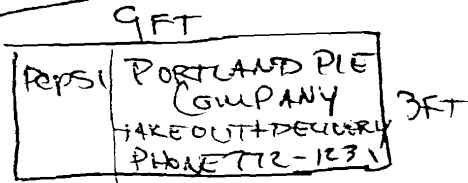 9FT
PEPSI
PORTLAND PIE
COMPANY
TAKEOUT+DELIVERY
PHONE 772-1231
3FT